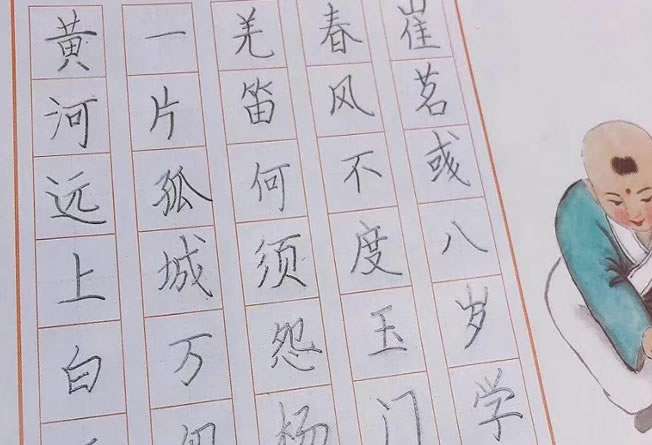 黄河远上白
一片孤城万
羌笛何须怨杨
春风不度玉门
崔茗彧八岁学